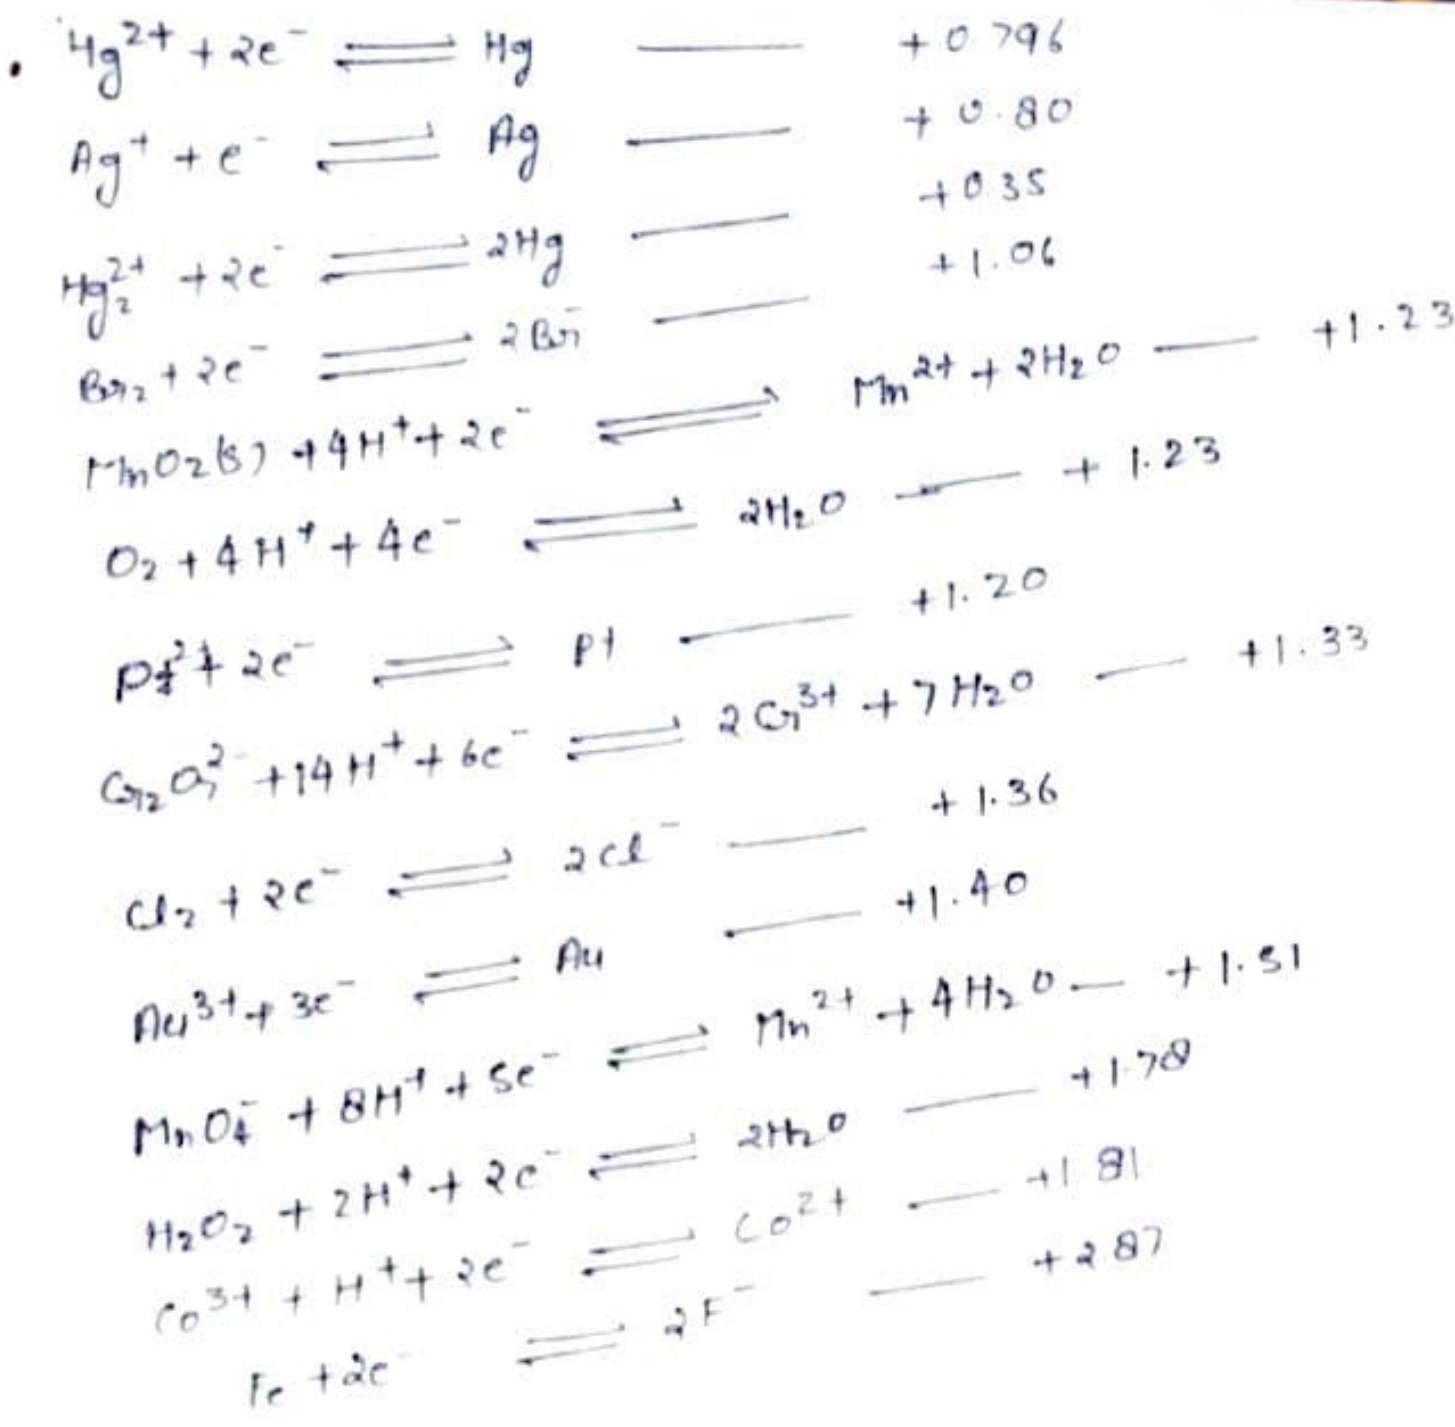 Hg²⁺ + 2e⁻ ⇌ Hg — +0.796
Ag⁺ + e⁻ ⇌ Ag — +0.80
Hg₂²⁺ + 2e⁻ ⇌ 2Hg — +0.35
Br₂ + 2e⁻ ⇌ 2Br⁻ — +1.06
MnO₂(s) + 4H⁺ + 2e⁻ ⇌ Mn²⁺ + 2H₂O — +1.23
O₂ + 4H⁺ + 4e⁻ ⇌ 2H₂O — +1.23
Pt²⁺ + 2e⁻ ⇌ Pt — +1.20
Cr₂O₇²⁻ + 14H⁺ + 6e⁻ ⇌ 2Cr³⁺ + 7H₂O — +1.33
Cl₂ + 2e⁻ ⇌ 2Cl⁻ — +1.36
Au³⁺ + 3e⁻ ⇌ Au — +1.40
MnO₄⁻ + 8H⁺ + 5e⁻ ⇌ Mn²⁺ + 4H₂O — +1.51
H₂O₂ + 2H⁺ + 2e⁻ ⇌ 2H₂O — +1.78
Co³⁺ + H⁺ + 2e⁻ ⇌ Co²⁺ — +1.81
Fe + 2e⁻ ⇌ 2F⁻ — +2.87